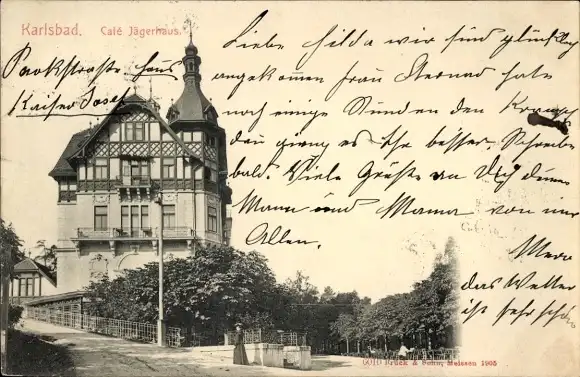 Karlsbad. Café Jägerhaus.
Parkstraße Haus
Kaiser Josef
Liebe Hilda wir sind glücklich
angekomen Frau Sternad hate
noch einige Stunden den Krampf
dan gieng es Ihr besser. Schreibe
bald. Viele Grüße an Dich deinen
Mann und Mama von uns
Allen.
das Wetter
ist sehr schön
COTO Brück & Sohn, Meissen 1905